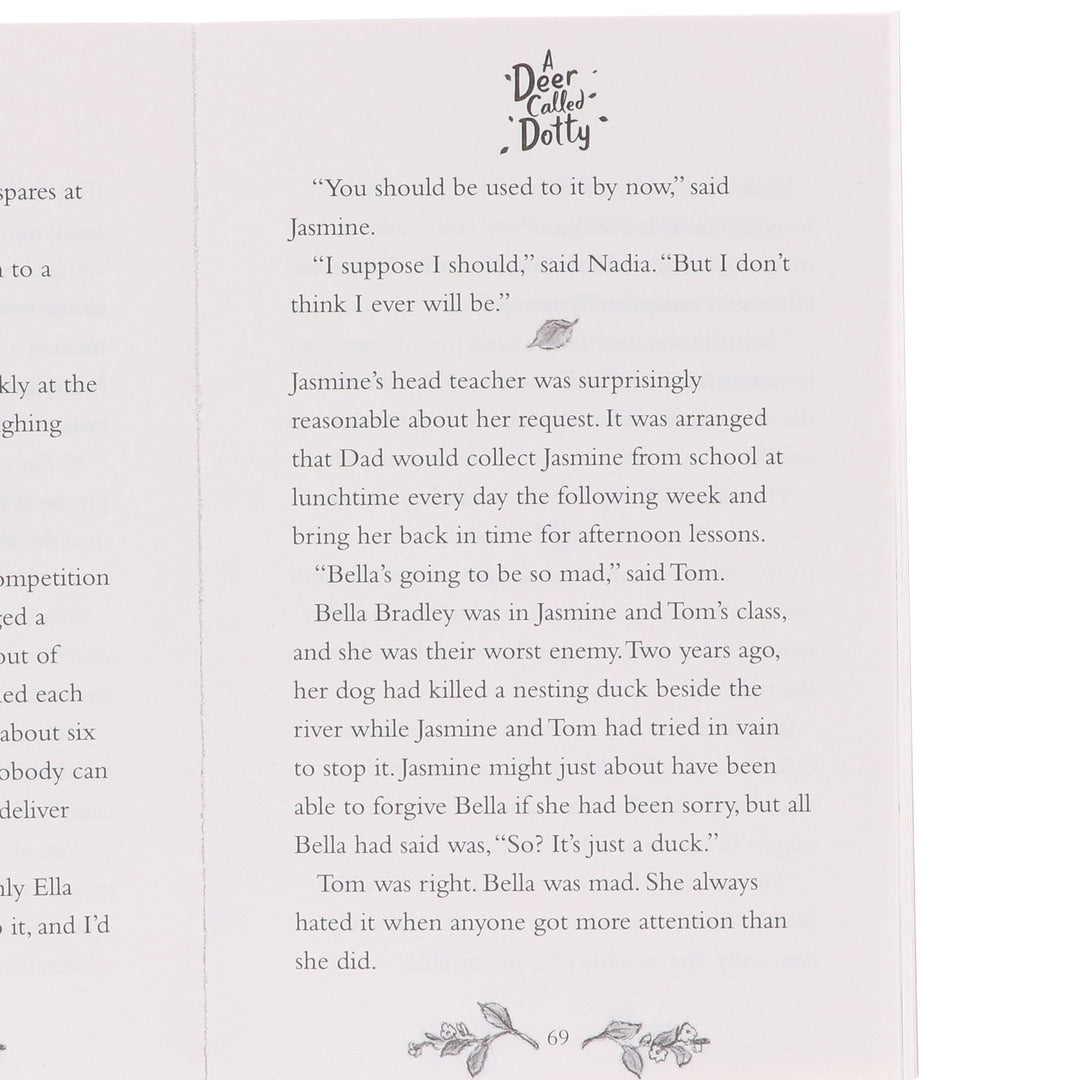 spares at
to a
at the
ompetition
a
out of
each
about six
can
deliver
Ella
it, and I'd
A
Deer
Called
Dotty
“You should be used to it by now,” said
Jasmine.
“I suppose I should,” said Nadia. “But I don't
think I ever will be.”
Jasmine's head teacher was surprisingly
reasonable about her request. It was arranged
that Dad would collect Jasmine from school at
lunchtime every day the following week and
bring her back in time for afternoon lessons.
“Bella's going to be so mad,” said Tom.
Bella Bradley was in Jasmine and Tom's class,
and she was their worst enemy. Two years ago,
her dog had killed a nesting duck beside the
river while Jasmine and Tom had tried in vain
to stop it. Jasmine might just about have been
able to forgive Bella if she had been sorry, but all
Bella had said was, “So? It's just a duck.”
Tom was right. Bella was mad. She always
hated it when anyone got more attention than
she did.
69